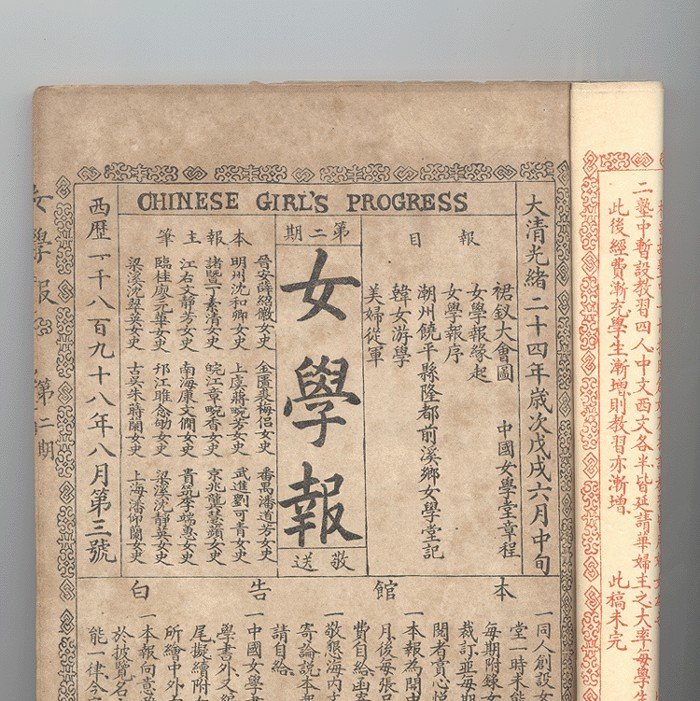 二塾中暫設教習四人中文西文各半皆延請華婦主之大率每學生
此後經費漸充學生漸增則教習亦漸增 此稿未完
CHINESE GIRL'S PROGRESS
大清光緒二十四年歲次戊戌六月中旬
報目
裙釵大會圖 中國女學堂章程
女學報緣起
女學報序
潮州饒平縣隆都前溪鄉女學堂記
韓女游學
美婦從軍
第二期
女學報
敬送
本報主筆
晉安薛紹徽女史 金匱裘梅侶女史 番禺潘道芳女史
明州沈和卿女史 上虞蔣畹芳女史 武進劉可青女史
諸暨丁素清女史 皖江章畹香女史 京兆龔慧蘋女史
江右文靜芳女史 南海康文僩女史 貴筑李端蕙女史
臨桂廖元華女史 邗江睢念劬女史 梁溪沈靜英女史
梁溪沈翠英女史 古吳朱蒔蘭女史 上海潘仰蘭女史
西歷一千八百九十八年八月第三號
本館告白
一同人創設女
堂一時未能
每期附錄女
裁訂並每期
閱者賞心悅
一本報為開中
月後每張只
費自給函寄
一敬懇海內大
寄論說本報
請自給
一中國女學書
學書外又編
尾擬續附女
所繪中外
一本報向意
於披覽名
能一律今
女學報 第二期